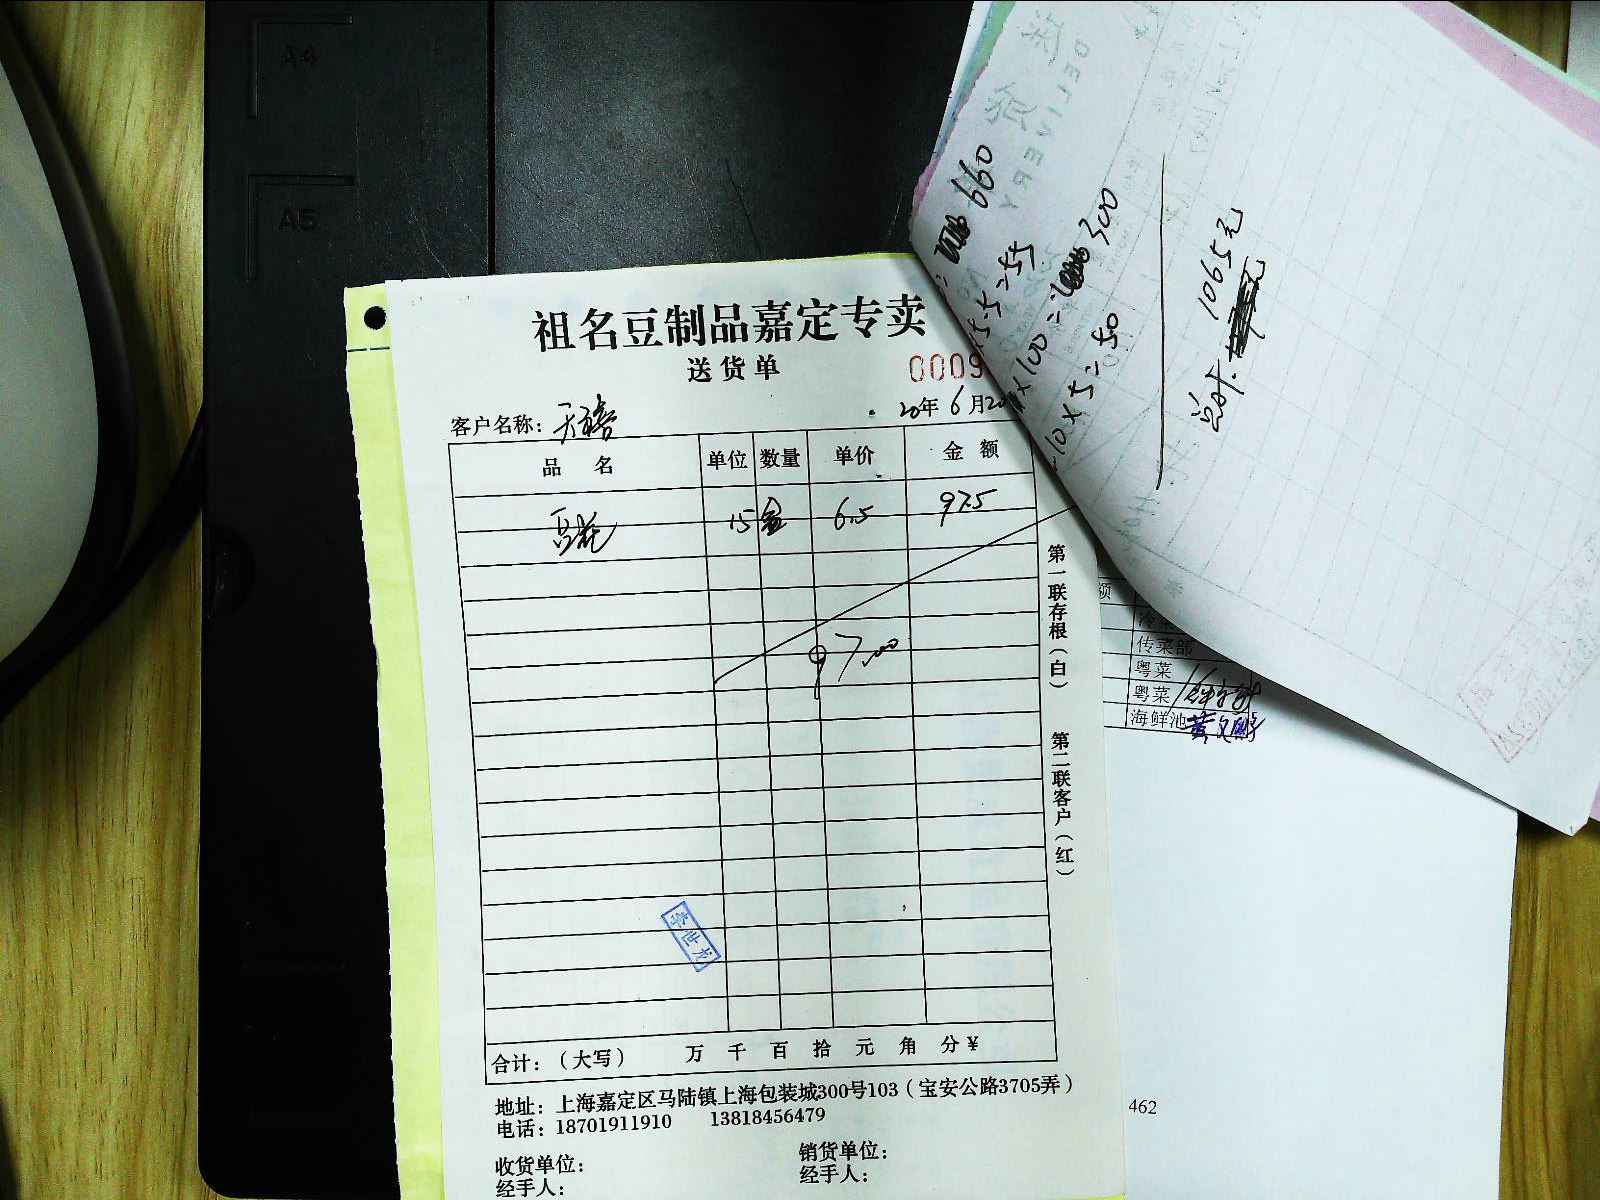 A4
A5
祖名豆制品嘉定专卖
送货单
0009
客户名称：天禧
20年6月20
品 名 单位 数量 单价 金 额
豆花 15 盒 6.5 97.5
97.00
第一联存根（白） 第二联客户（红）
李世龙
合计：（大写） 万 千 百 拾 元 角 分 ¥
地址：上海嘉定区马陆镇上海包装城300号103（宝安公路3705弄）
电话：18701911910 13818456479
收货单位： 销货单位：
经手人： 经手人：
660
×5.5=55
×100=300
10×5=50
总计：1065元
DELIVERY
额
传菜部
粤菜
粤菜
海鲜池 黄文鹏
462